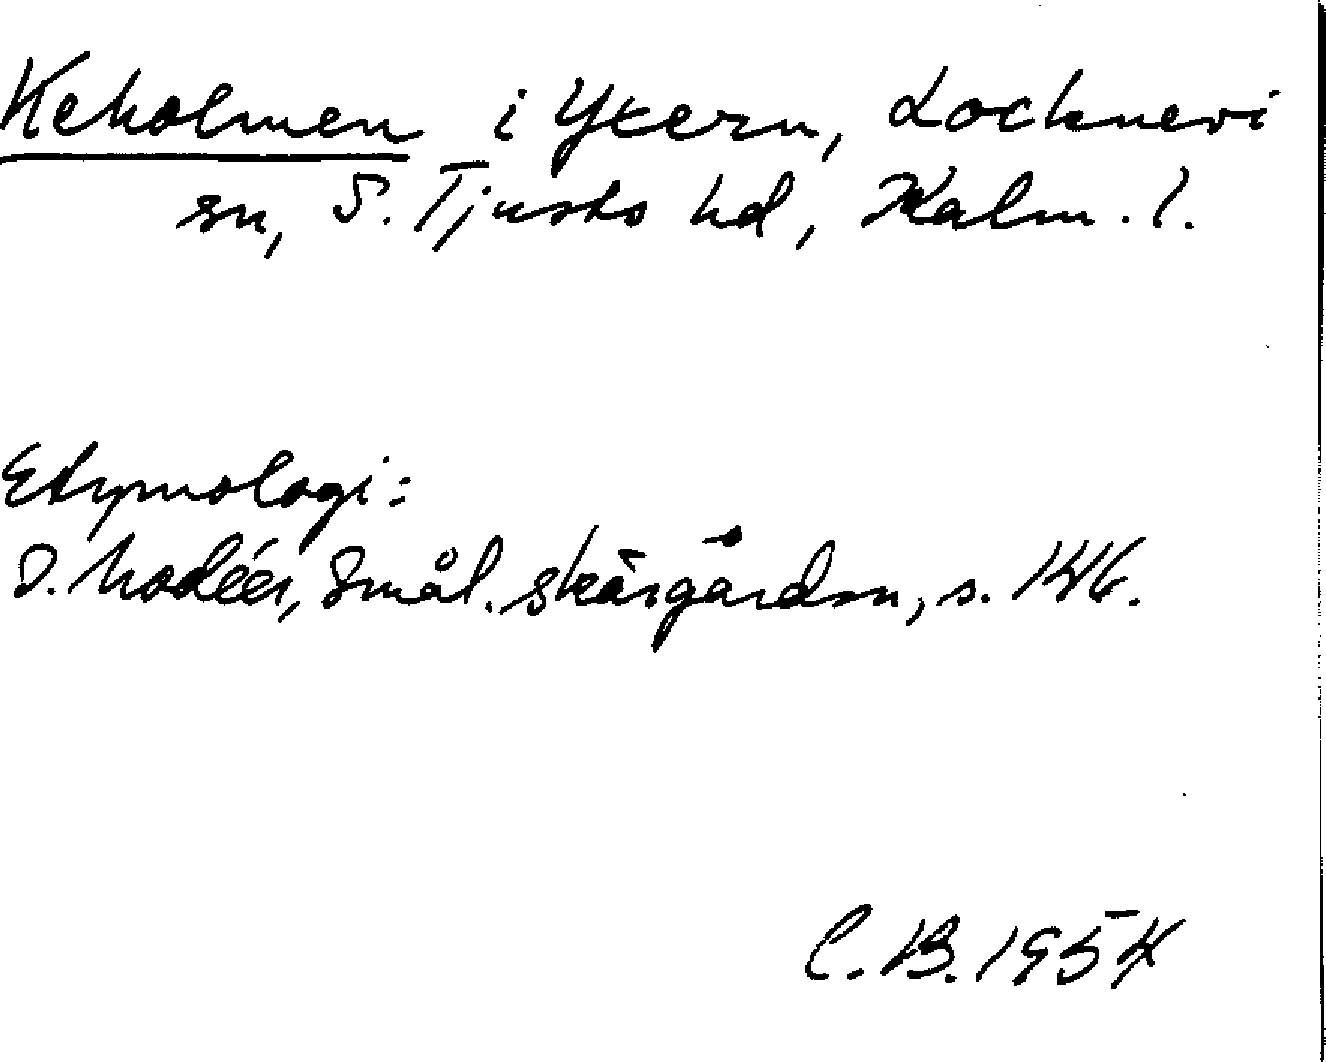 Keholmen i Yxern, Locknevi
sn, S. Tjusts hd, Kalm. l.
Etymologi:
I. Modéer, Smål. skärgårdsn, s. 146.
C. B. 1954